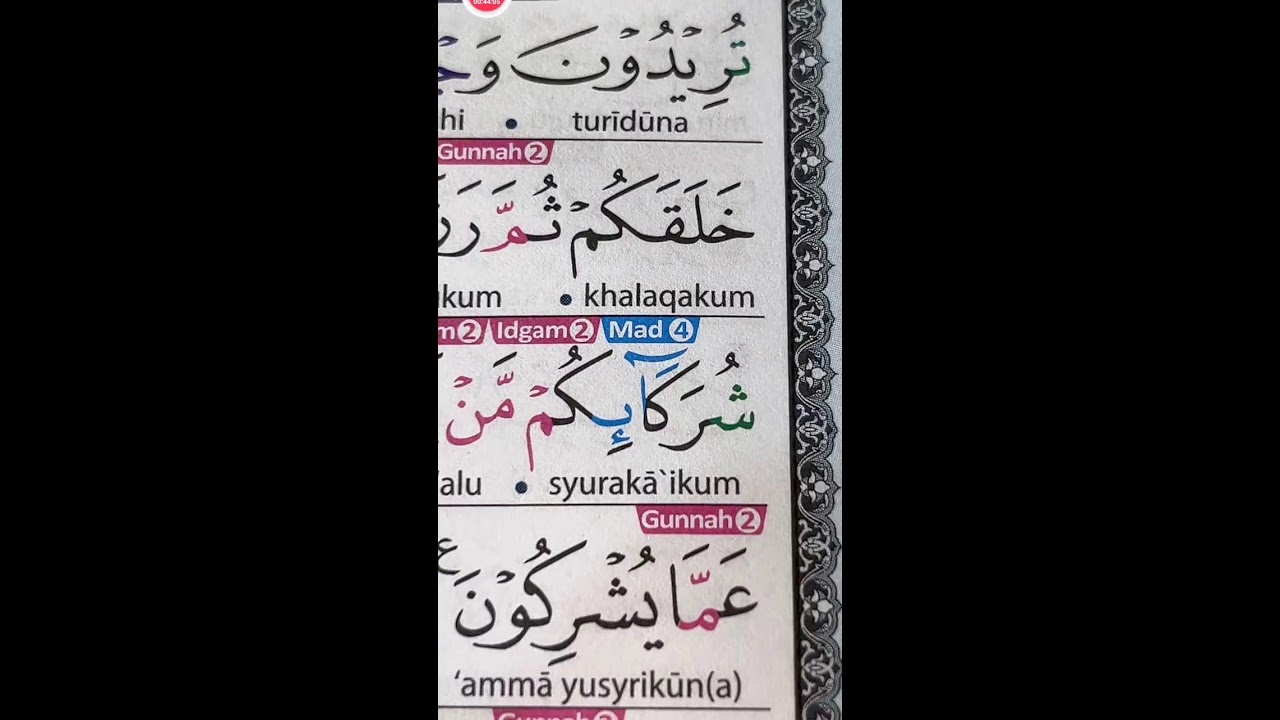 00:44:05
تُرِيْدُوْنَ
hi • turīdūna
Gunnah 2
خَلَقَكُمْ ثُمَّ
kum • khalaqakum
Idgam 2 Mad 4
شُرَكَاۤىِٕكُمْ مَّنْ
alu • syurakā`ikum
Gunnah 2
عَمَّا يُشْرِكُوْنَ
‘ammā yusyrikūn(a)
Gunnah 2